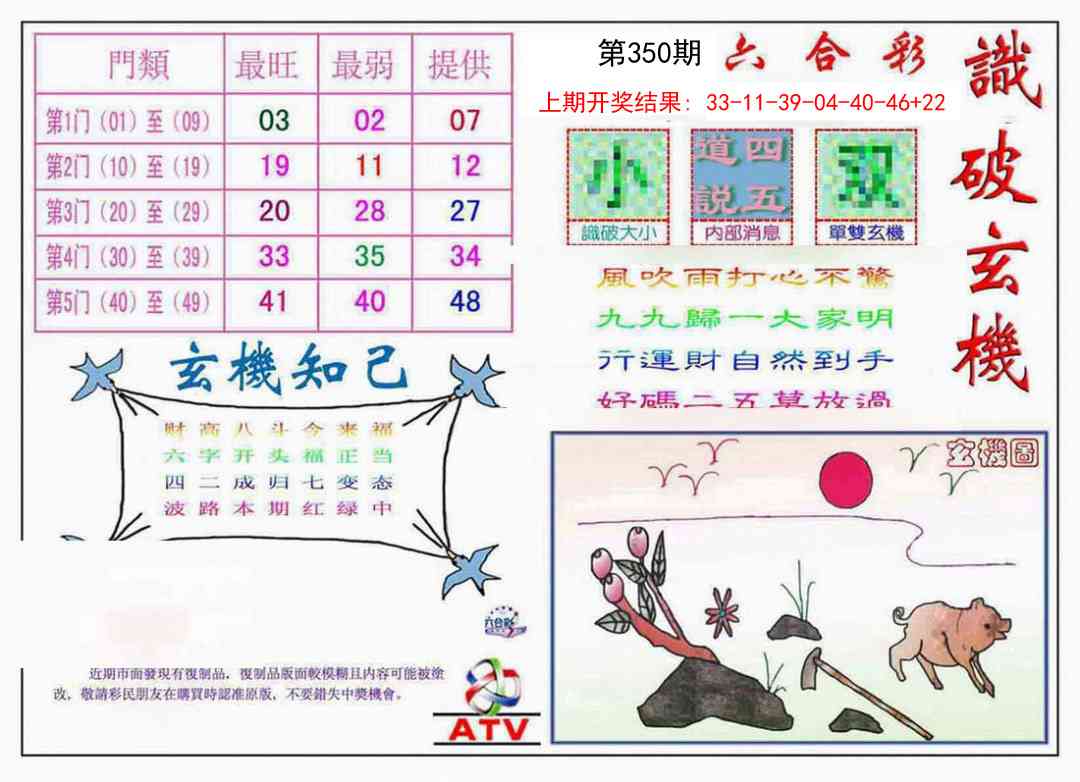 門類 最旺 最弱 提供
第1门（01）至（09） 03 02 07
第2门（10）至（19） 19 11 12
第3门（20）至（29） 20 28 27
第4门（30）至（39） 33 35 34
第5门（40）至（49） 41 40 48
第350期 六合彩
上期开奖结果：33-11-39-04-40-46+22
識破玄機
小
道四
説五
双
識破大小
内部消息
單雙玄機
風吹雨打心不驚
九九歸一大家明
行運財自然到手
好碼二五莫放過
玄機知己
财高八斗今来福
六字开头福正当
四二成归七变态
波路本期红绿中
玄機圖
六合彩
近期市面發現有復制品，復制品版面較模糊且内容可能被塗
改，敬請彩民朋友在購買時認准原版，不要錯失中奬機會。
ATV